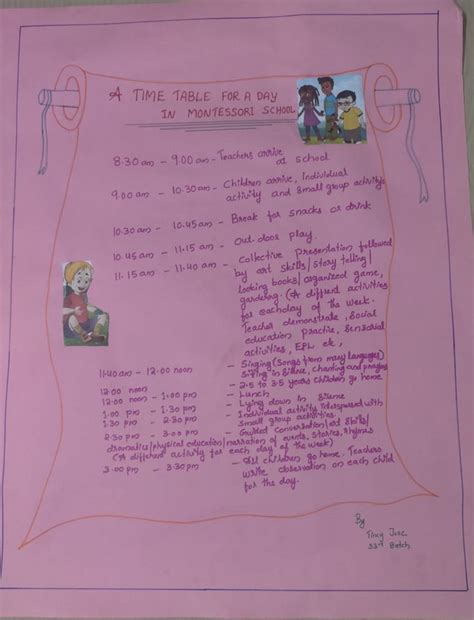 A TIME TABLE FOR A DAY
IN MONTESSORI SCHOOL
8.30 am - 9.00 am - Teachers arrive
at school
9.00 am - 10.30 am - Children arrive, Individual
activity and Small group activity's
10.30 am - 10.45 am - Break for snacks or drink
10.45 am - 11.15 am - Out door play.
11.15 am - 11.40 am - Collective Presentation followed
by art Skills/ Story telling/
looking books/ organized game,
gardering. (A diffrent activities
for eachday of the week.
Teacher demonstrate, Social
education practie, Sensorial
activities, EPL etc,
11.40 am - 12.00 noon - Singing (Songs from many languages)
sitting in Silence, chanting and praying
12.00 noon - 2.5 to 3.5 years children go home
12.00 noon - 1.00 pm - Lunch
1.00 pm - 1.30 pm - Lying down in Silence
1.30 pm - 2.30 pm - Individual activity interspersed with
Small group activities.
2.30 pm - 3.00 pm - Guided Conversation/ art Skills/
dramatics/physical education/narration of events, Stories, Rhymes
(A different activity for each day of the week)
3.00 pm - 3.30 pm - All children go home. Teachers
write observation on each child
for the day.
By
53rd Batch